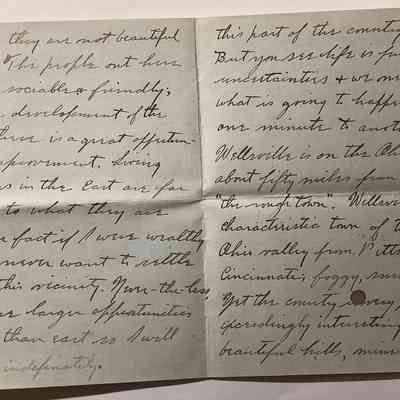 they are not beautiful
The people out here
sociable & friendly;
development of the
there is a great opportun-
provement. Living
s in the East are far
to what they are
fact if I were wealthy
never want to settle
this vicinity. Never-the-less,
larger opportunities
than east so I will
indefinately.
this part of the countr
But you see life is fu
uncertainties & we one
what is going to happe
one minute to anoth
Wellsville is on the Oh
about fifty miles from
"the rough town". Wellsv
characteristic town of t
Ohio valley from Pitts
Cincinnati; foggy,
Yet the county
exceedingly interesting
beautiful hills,